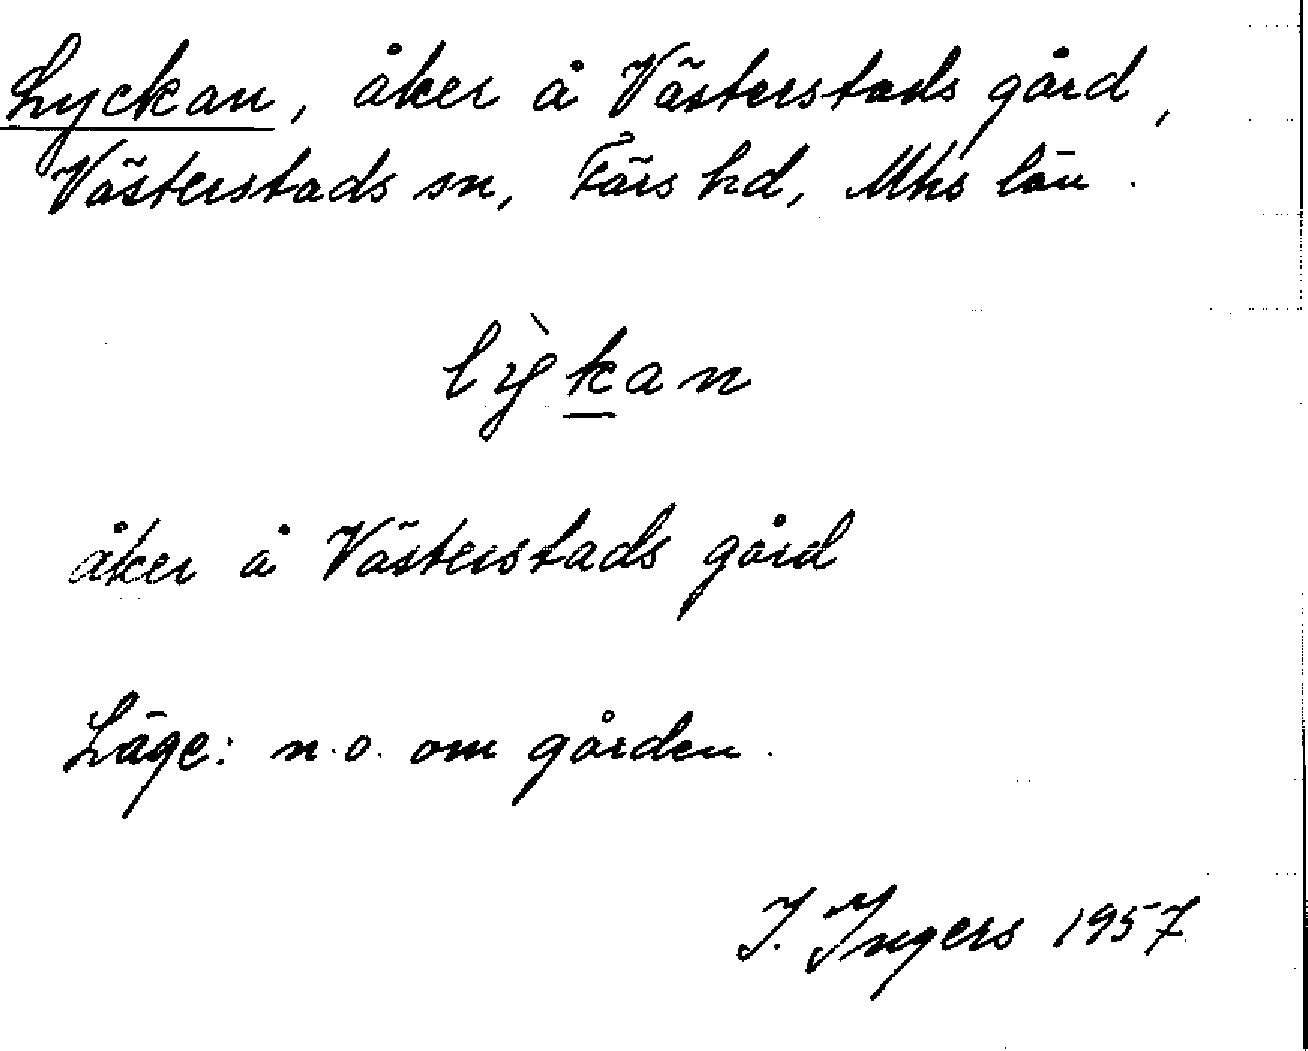 Lyckan, åker å Västerstads gård,
Västerstads sn, Färs hd, Mhs län.
lỳkan
åker å Västerstads gård
Läge: n.o. om gården.
I. Ingers 1957